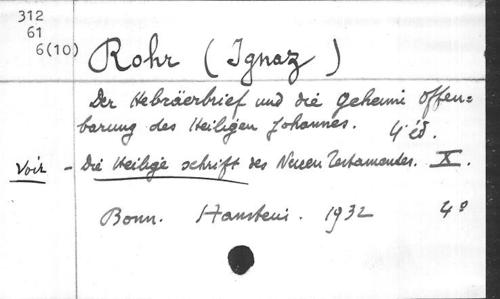 312
61
6(10)
Rohr (Ignaz)
Der Hebräerbrief und die geheime Offen=
barung des Heiligen Johannes. 4e éd.
Voir - Die Heilige schrift des Neuen Testamentes. X.
Bonn. Hanstein. 1932 4°